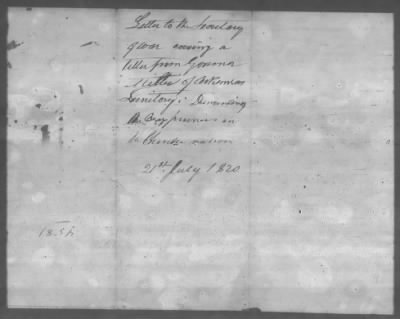 Letter to the Secretary
of War covering a
letter from Governor
Miller of Arkansas
Territory; Demanding
the Osage prisoners in
the Cherokee nation
21st July 1820